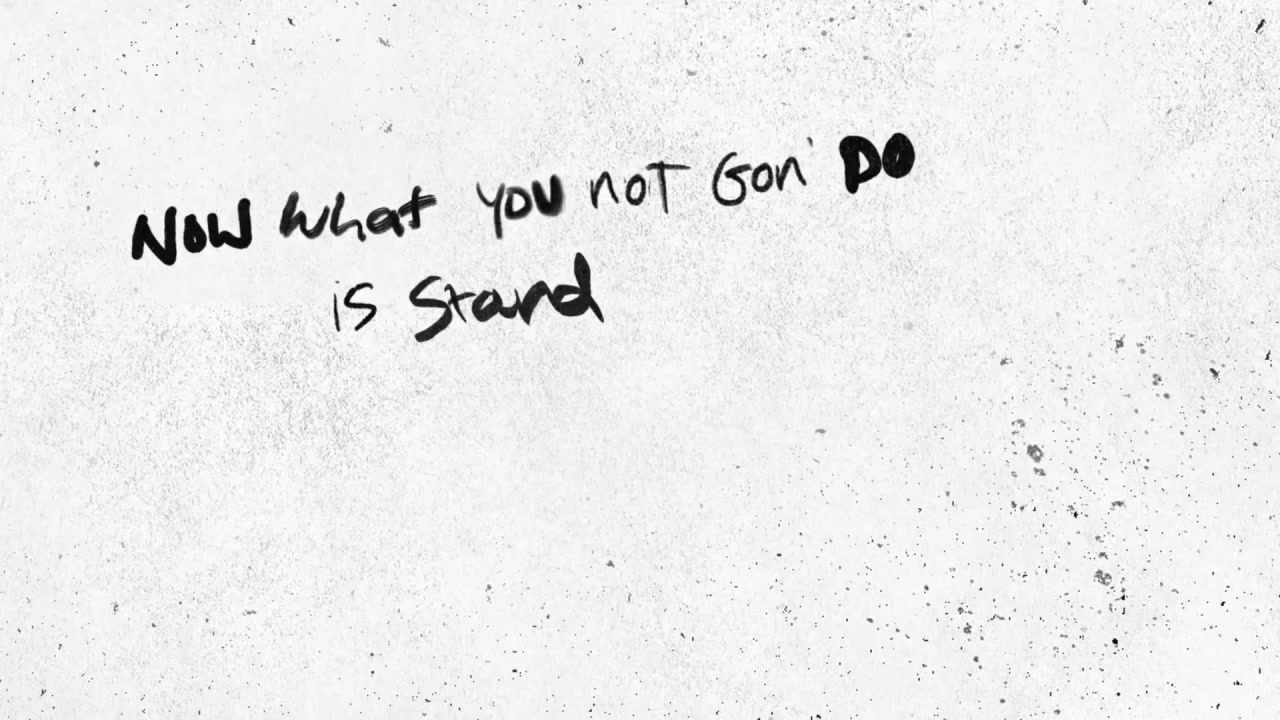 NOW what YOU noT Gon' DO
is Stand